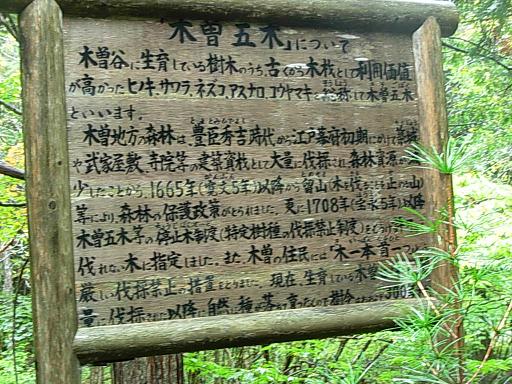 「木曽五木」について
木曽谷に生育している樹木のうち、古くから木材として利用価値
が高かったヒノキ、サワラ、ネズコ、アスナロ、コウヤマキを総称して木曽五木
といいます。
木曽地方の森林は、豊臣秀吉時代から江戸幕府初期にかけ築城
や武家屋敷、寺院等の建築資材として大量に伐採され森林資源が
少したことから、1665年(寛文5年)以降から留山(木を伐ることを止めた山)
等により、森林の保護政策がとられました。更に1708年(宝永5年)以降
木曽五木等の停止木制度(特定樹種の伐採禁止制度)をもうけ
伐れない木に指定しました。また、木曽の住民には「木一本首一つ」と
厳しい伐採禁止の措置をとりました。現在、生育している木曽
量に伐採された以降に自然に種が落ち育ったもので樹令は 300年